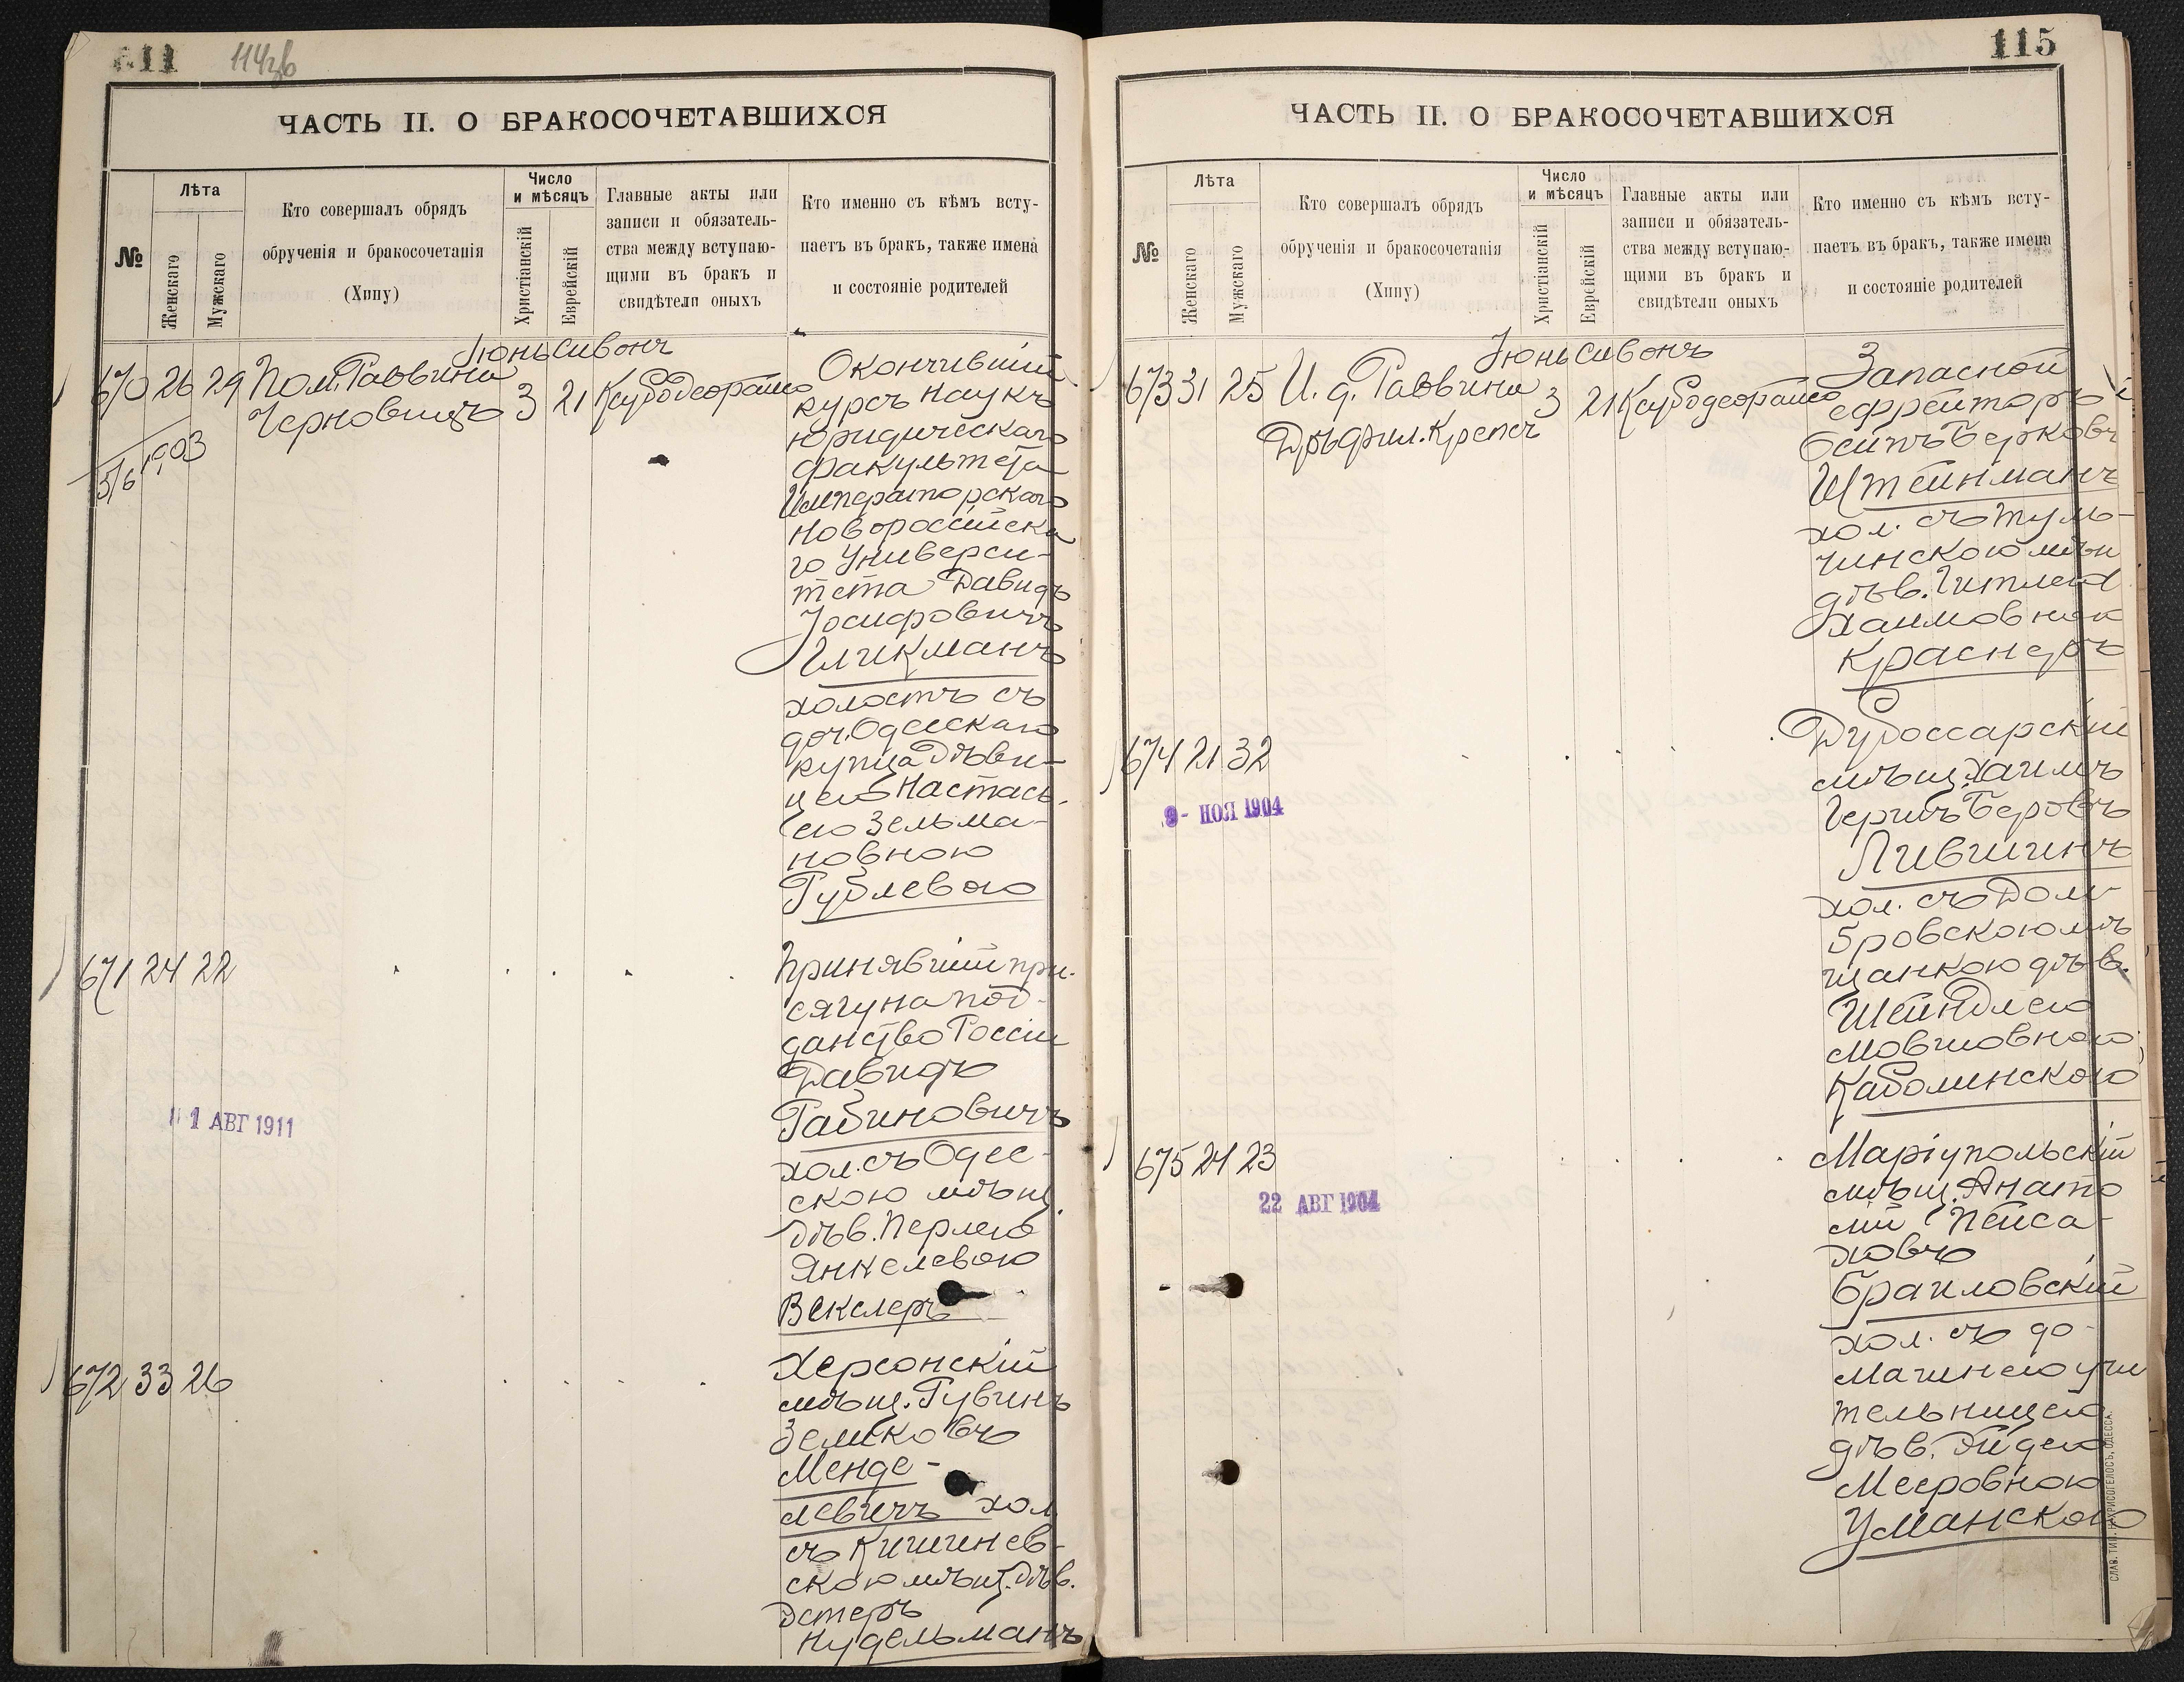 114зв
ЧАСТЬ II. О БРАКОСОЧЕТАВШИХСЯ
№
Лѣта
Женскаго
Мужскаго
Кто совершалъ обрядъ
обрученія и бракосочетанія
(Хипу)
Число
и мѣсяцъ
Христіанскій
Еврейскій
Главные акты или
записи и обязатель-
ства между вступаю-
щими въ бракъ и
свидѣтели оныхъ
Кто именно съ кѣмъ всту-
паетъ въ бракъ, также имена
и состояніе родителей
Іюнь Сивонъ
670 26 29 Пом. Раввина
Черновицъ 3 21 Ксубо де ораито
5/6 1903
Окончившій
курсъ наукъ
юридическаго
факультета
Императорскаго
Новороссійска
го Универси-
тета Давидъ
Іосифовичъ
Гликманъ
холостъ съ
доч. Одесскаго
купца Дѣви-
цею Настась-
ею Зельма-
новною
Рублевою
671 24 22
Принявшій при-
сягу на под-
данство Россіи
Давидъ
Рабиновичъ
хол. съ Одес-
скою мѣщ.
Дѣв. Перлею
Янкелевою
Векслеръ
1 АВГ 1911
672 33 26
Херсонскій
мѣщ. Рувинъ
Зельковъ
Менде-
левичъ хол.
съ Кишинев-
скою мѣщ. Дѣв.
Эстеръ
Нудельманъ
115
ЧАСТЬ II. О БРАКОСОЧЕТАВШИХСЯ
№
Лѣта
Женскаго
Мужскаго
Кто совершалъ обрядъ
обрученія и бракосочетанія
(Хипу)
Число
и мѣсяцъ
Христіанскій
Еврейскій
Главные акты или
записи и обязатель-
ства между вступаю-
щими въ бракъ и
свидѣтели оныхъ
Кто именно съ кѣмъ всту-
паетъ въ бракъ, также имена
и состояніе родителей
Іюнь Сивонъ
673 31 25 И. д. Раввина 3 21 Ксубо де ораито
Дръ фил. Крепсъ
Запасной
ефрейторъ
Осипъ Берковъ
Штейнманъ
хол. съ Туль-
чинскою мѣщ
дѣв. Гитлею
Хаимовною
Краснеръ
674 21 32
9 - НОЯ 1904
Дубоссарскій
мѣщ. Хаимъ
Гершъ Беровъ
Лившинъ
хол. съ Дом-
бровскою мѣ
щанкою дѣв.
Шейндлею
Мовшовною
Каболинскою
675 24 23
22 АВГ 1904
Маріупольскій
мѣщ. Анато
лій Пейса-
ховъ
Браиловскій
хол. съ до-
машнею учи
тельницею
дѣв. Эйдею
Мееровною
Уманскою
СЛАВ. ТИП. Н. ХРИСОГЕЛОСЪ, ОДЕССА.